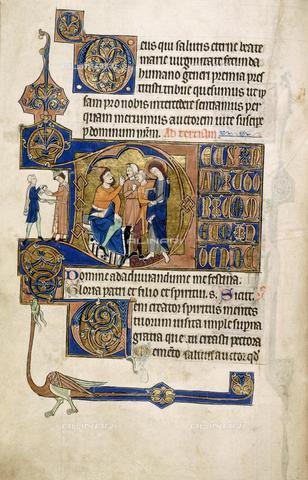 Deus qui salutis eterne beate
marie uirginitate fecunda
humano generi premia pres
titisti: tribue quesumus ut ip
sam pro nobis intercedere sentiamus per
quam meruimus auctorem uite suscipe
dominum nrm. Ad terciam
DEUS IN
ADIUTO
RIUM
MEUM
INTENDE
Domine ad adiuuandum me festina.
Gloria patri et filio et spiritui. s. Sicut
Veni creator spiritus mentes
tuorum uisita imple supna
gratia que tu creasti pectora
Memento salutis auctor qd
ALINARI
ALINARI
ALINARI